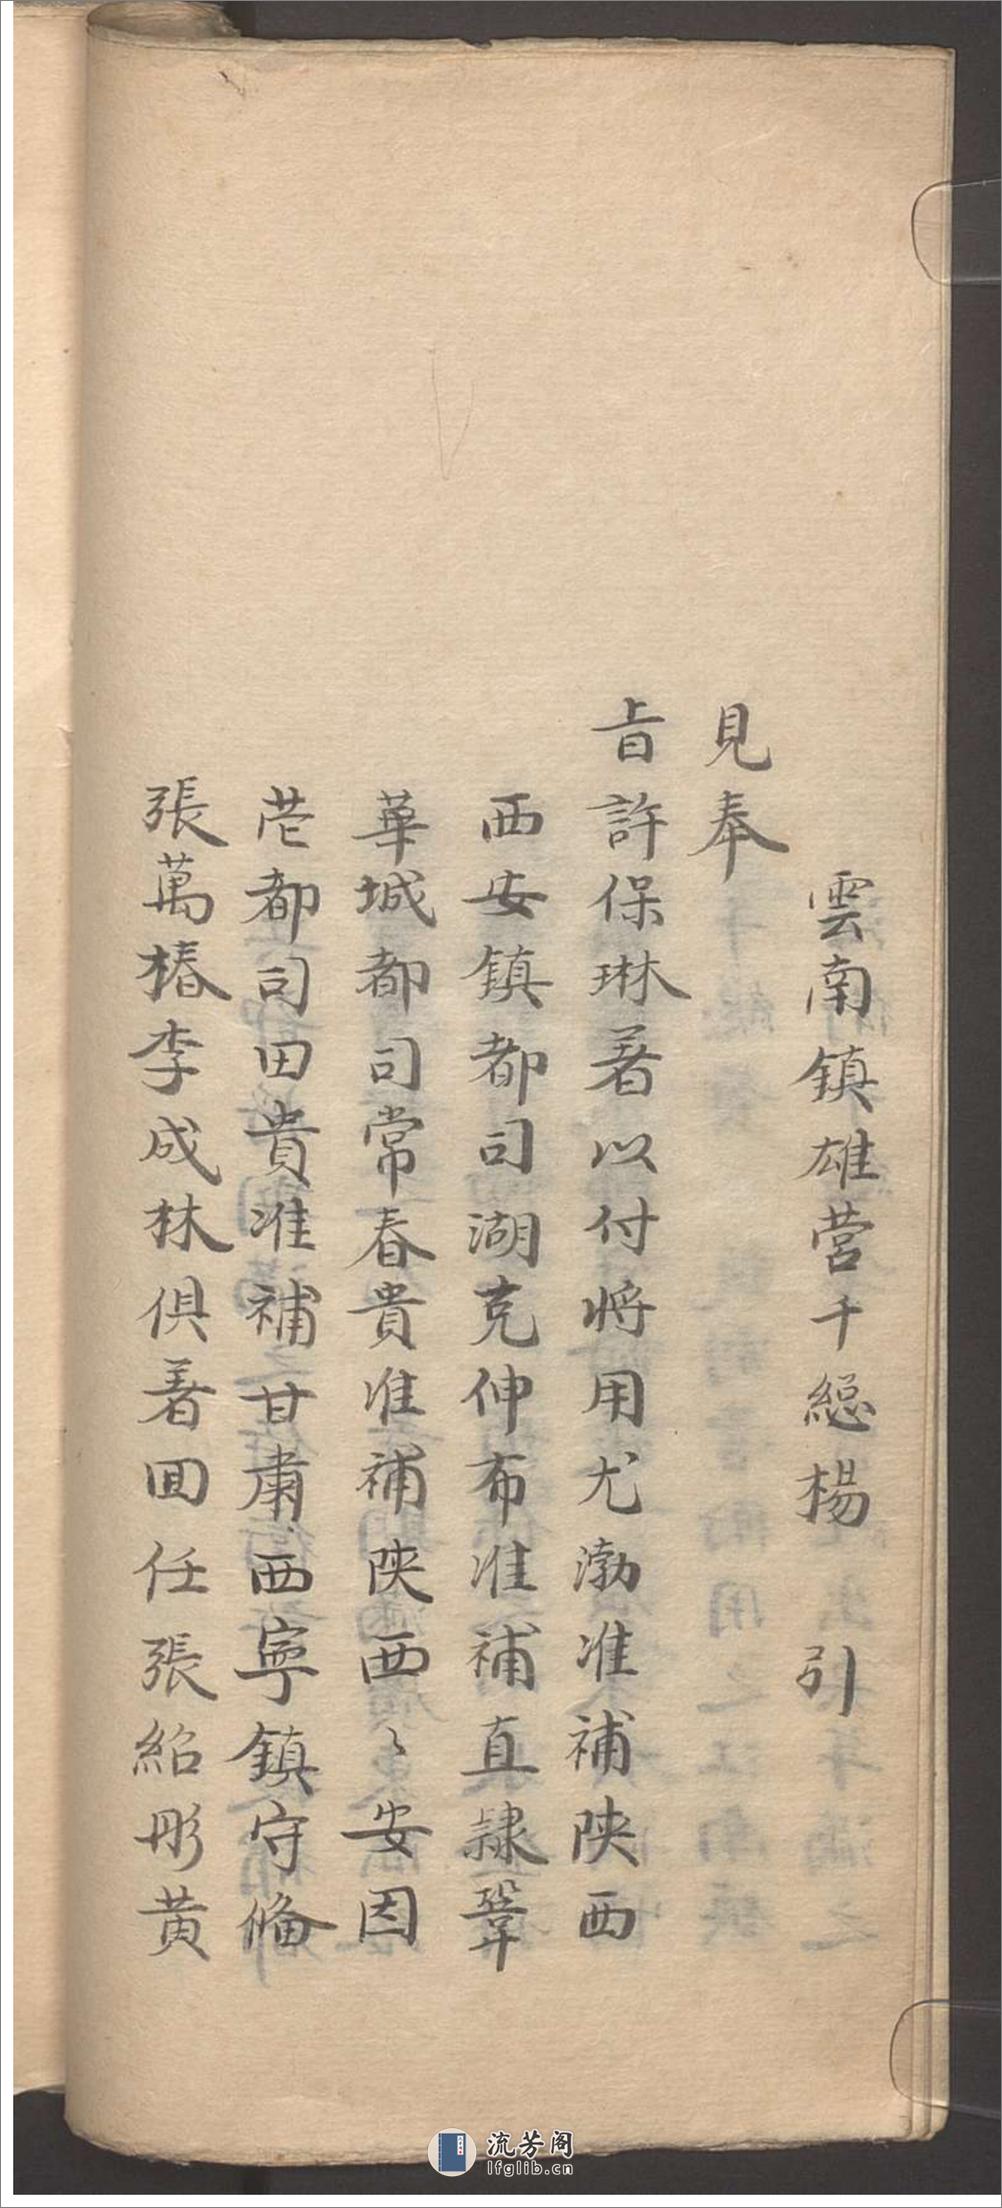 雲南鎮雄營千總楊　引
見奉
旨許保琳著以付將用尤渤准補陝西
西安鎮都司湖克伸布准補直隸鞏
華城都司常春貴准補陝西〻安因
都司田貴准補甘肅西寧鎮守俻
張萬椿李成林俱著囬任張紹彤黃
流芳阁
lfglib.cn